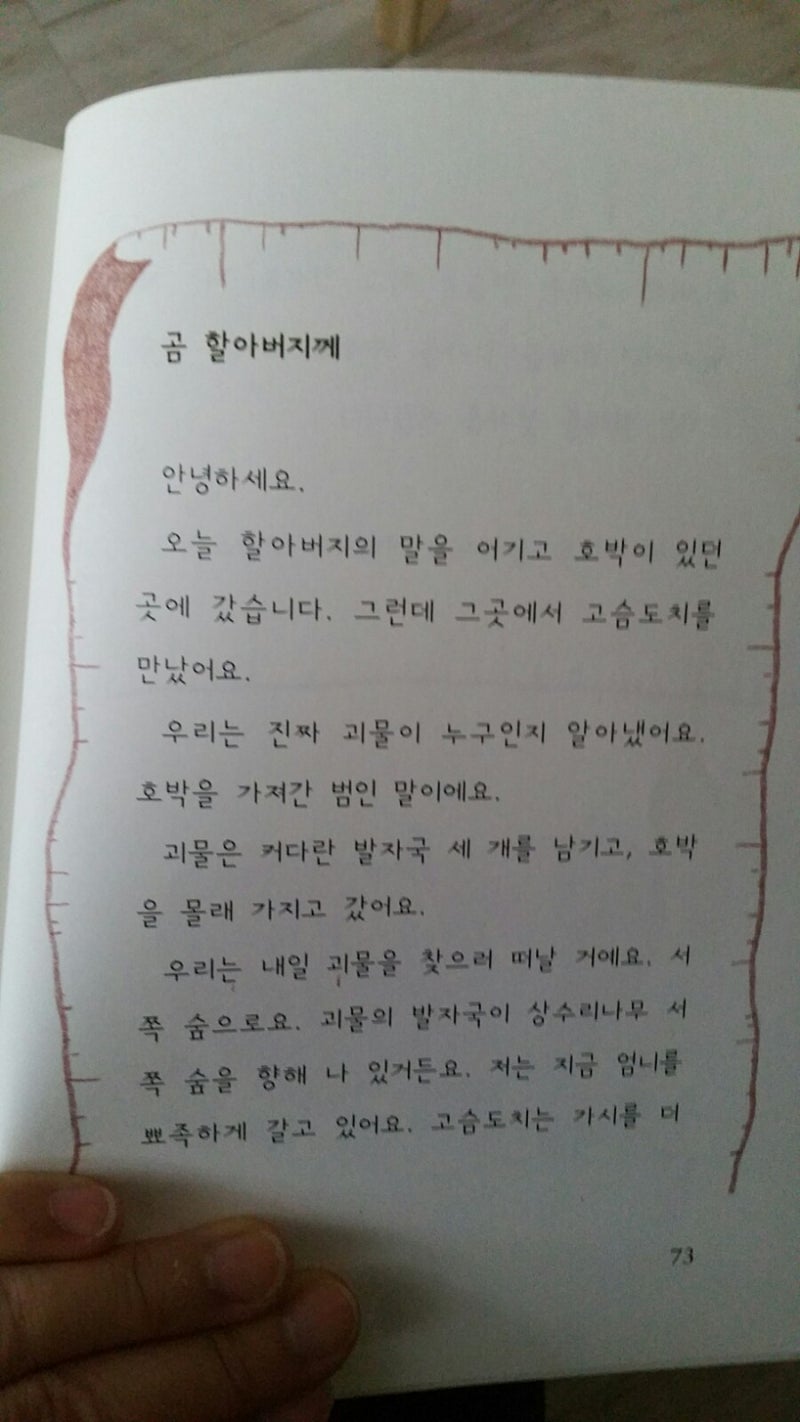 곰 할아버지께
안녕하세요.
오늘 할아버지의 말을 어기고 호박이 있던
곳에 갔습니다. 그런데 그곳에서 고슴도치를
만났어요.
우리는 진짜 괴물이 누구인지 알아냈어요.
호박을 가져간 범인 말이에요.
괴물은 커다란 발자국 세 개를 남기고, 호박
을 몰래 가지고 갔어요.
우리는 내일 괴물을 찾으러 떠날 거예요. 서
쪽 숲으로요. 괴물의 발자국이 상수리나무 서
쪽 숲을 향해 나 있거든요. 저는 지금 엄니를
뾰족하게 갈고 있어요. 고슴도치는 가시를 더
73